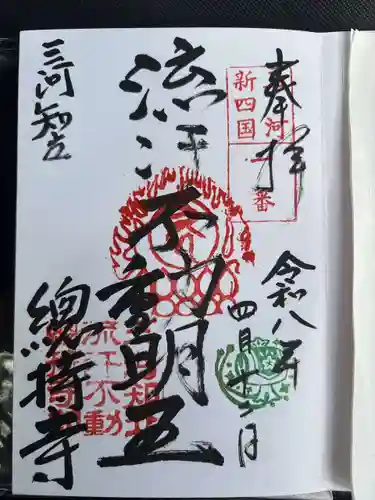 奉拝
三河新四国
一番
令和八年
四月十二日
流汗不動明王
三河知立
總持寺
流汗不動